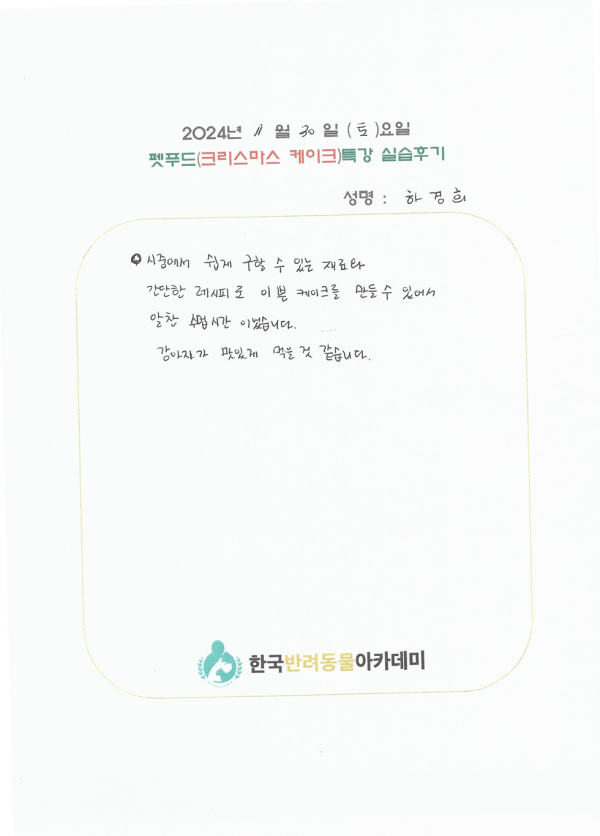 2024년 11월 30일 (토)요일
펫푸드(크리스마스 케이크)특강 실습후기
성명 : 하경희
시중에서 쉽게 구할 수 있는 재료와
간단한 레시피로 이쁜 케이크를 만들수 있어서
알찬 수업시간 이었습니다.
강아지가 맛있게 먹을것 같습니다.
한국반려동물아카데미